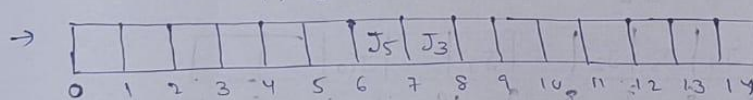 → J5 J3
0 1 2 3 4 5 6 7 8 9 10 11 12 13 14